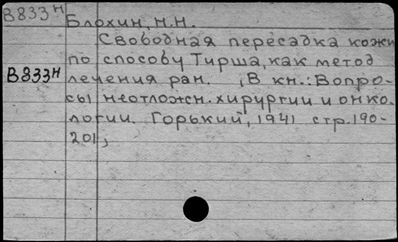 В833Н
Блохин, Н.Н.
Свободная пересадка кожи
по способу Тирша, как метод
В833Н
лечения ран. , В кн.: Вопро-
сы неотложн. хирургии и онко-
логии. Горький, 1941 стр. 190-
201,